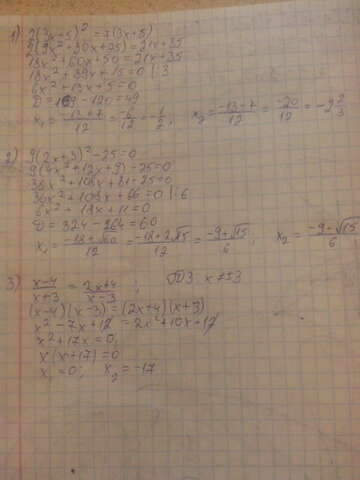 1) 2(3x+5)² = 7(3x+5)
2(9x²+30x+25) = 21x+35
18x²+60x+50 = 21x+35
18x²+39x+15=0 |:3
6x²+13x+5=0
D=169-120=49
x₁=(-13+7)/12=-6/12=-1/2, x₂=(-13-7)/12=-20/12=-2 2/3
2) 9(2x+3)²-25=0
9(4x²+12x+9)-25=0
36x²+108x+81-25=0
36x²+108x+66=0 |:6
6x²+18x+11=0
D=324-264=60
x₁=(-18+√60)/12=(-18+2√15)/12=(-9+√15)/6, x₂=(-9-√15)/6
3) (x-4)/(x+3)=(2x+4)/(x-3), ПОЗ: x≠±3
(x-4)(x-3)=(2x+4)(x+3)
x²-7x+12=2x²+10x+12
x²+17x=0,
x(x+17)=0
x₁=0; x₂=-17